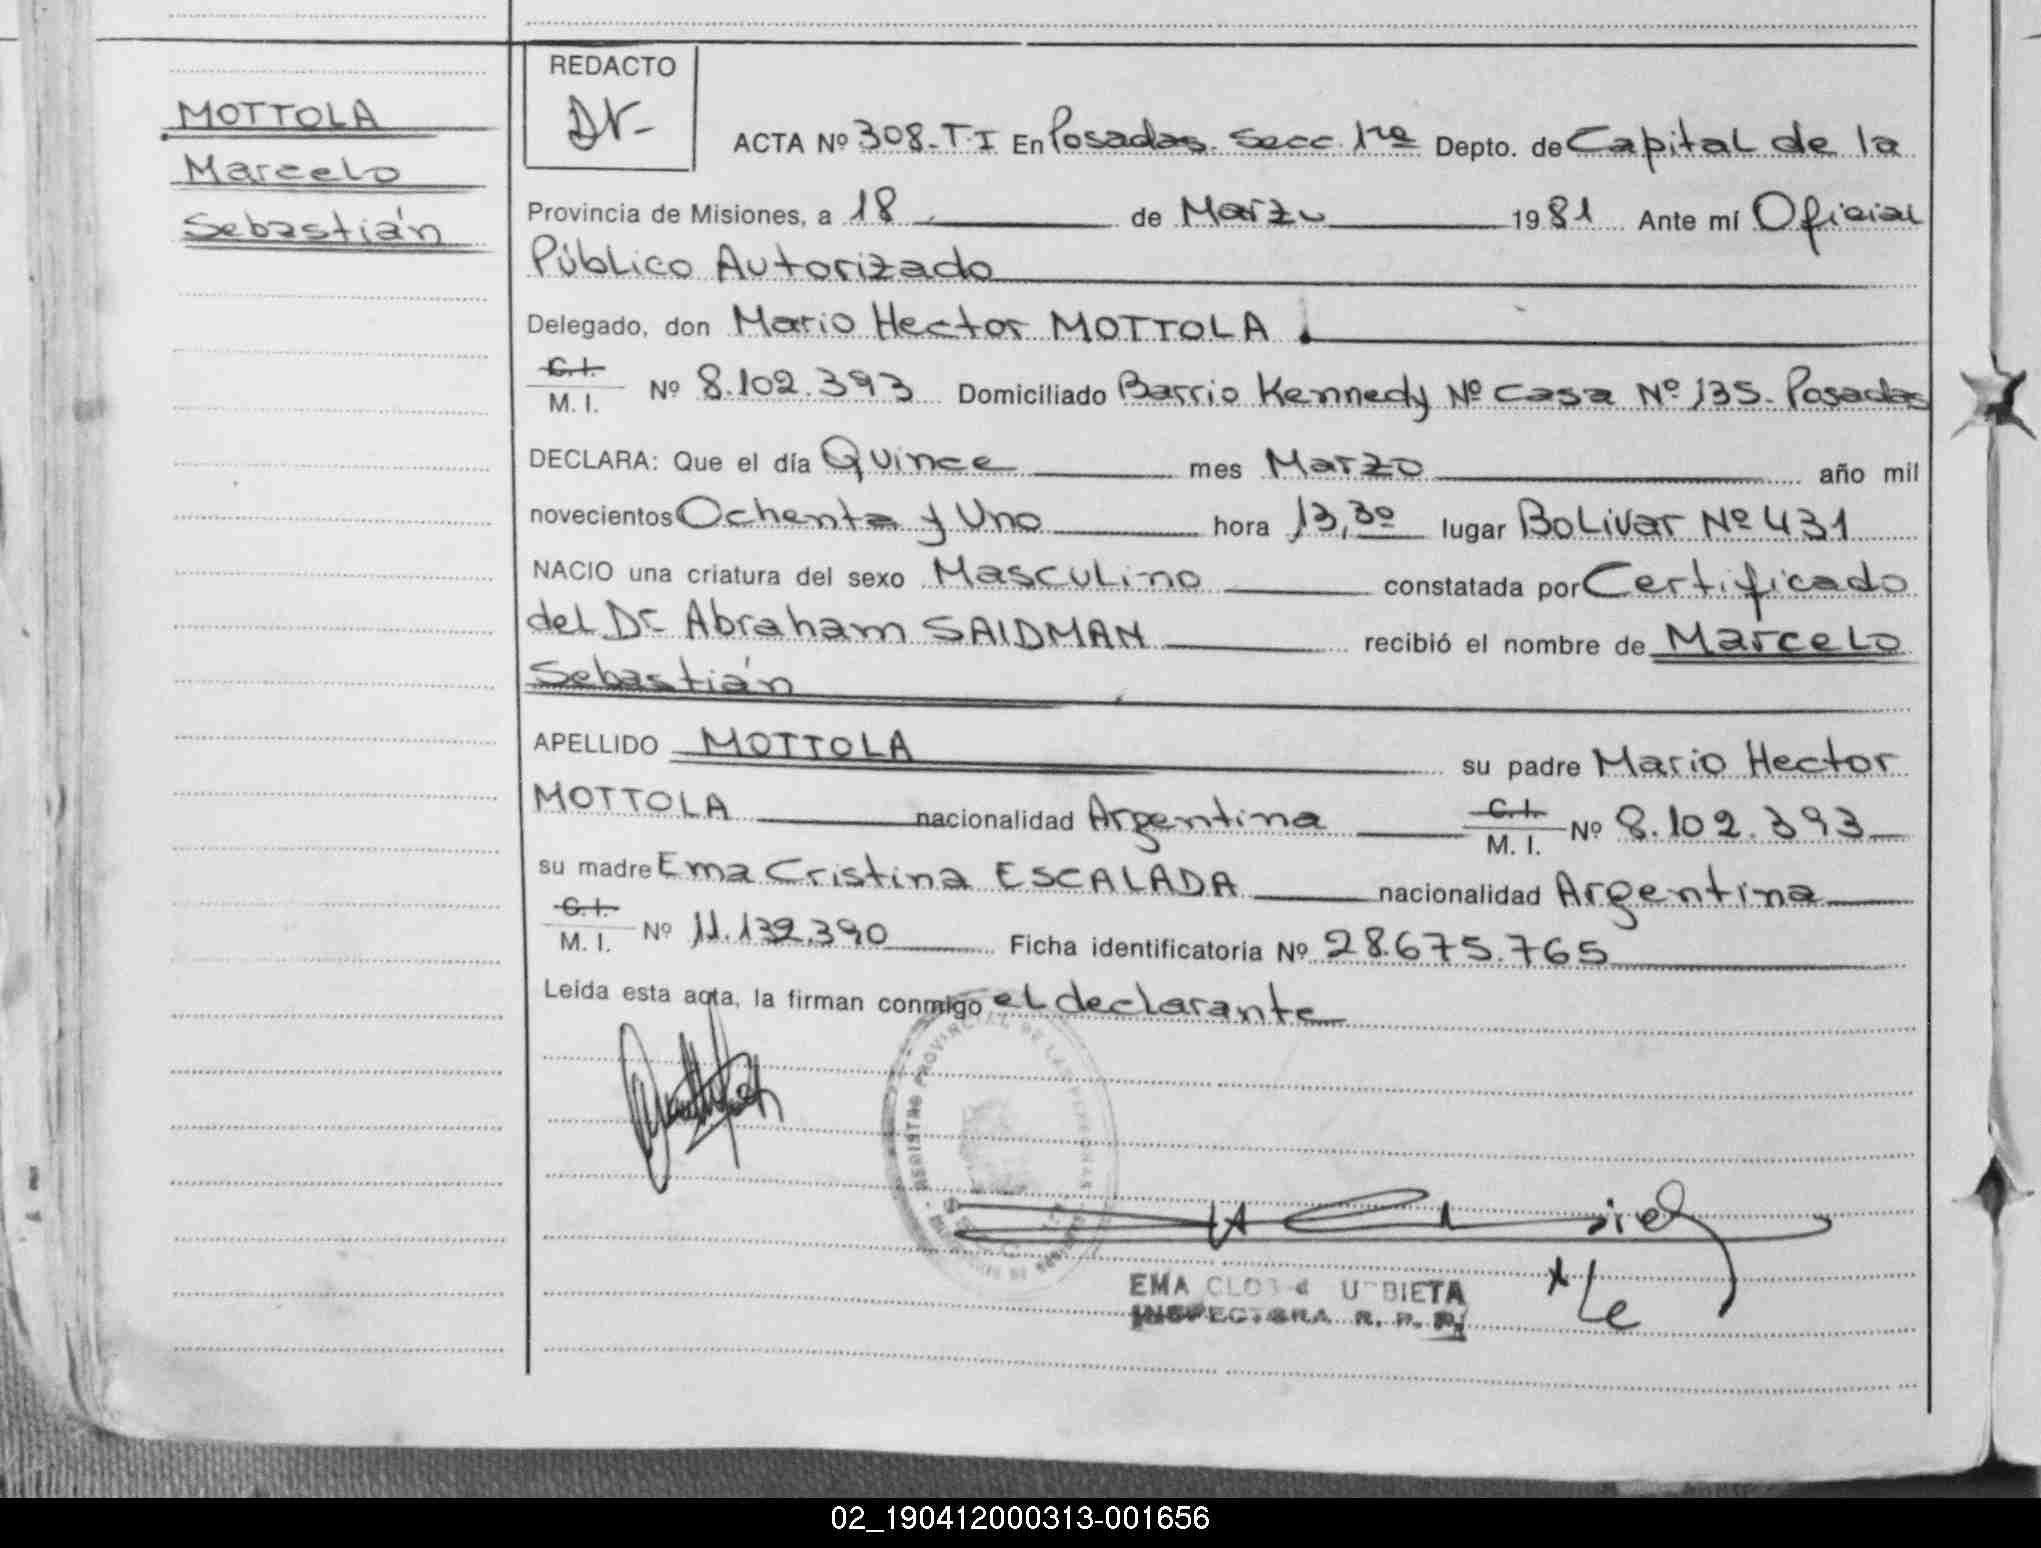 MOTTOLA
Marcelo
Sebastián
REDACTO
ACTA Nº 308-T-I En Posadas. Secc. 1ra Depto. de Capital de la
Provincia de Misiones, a 18 de Marzo 1981 Ante mí Oficial
Público Autorizado
Delegado, don Mario Hector MOTTOLA.
C. I.
M. I. Nº 8.102.393 Domiciliado Barrio Kennedy Nº Casa Nº 135- Posadas
DECLARA: Que el día Quince mes Marzo año mil
novecientos Ochenta y Uno hora 13,30 lugar Bolivar Nº 431
NACIO una criatura del sexo Masculino constatada por Certificado
del Dr Abraham SAIDMAN recibió el nombre de Marcelo
Sebastián
APELLIDO MOTTOLA su padre Mario Hector
MOTTOLA nacionalidad Argentina C. I. M. I. Nº 8.102.393
su madre Ema Cristina ESCALADA nacionalidad Argentina
C. I.
M. I. Nº 11.132.390 Ficha identificatoria Nº 28.675.765
Leída esta acta, la firman conmigo el declarante
REGISTRO PROVINCIAL DE LAS PERSONAS
EMA URBIETA
INSPECTORA R. P. P.
02_190412000313-001656